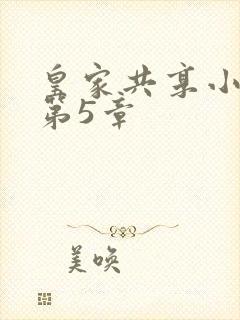 皇家共享小
第5章
美唤